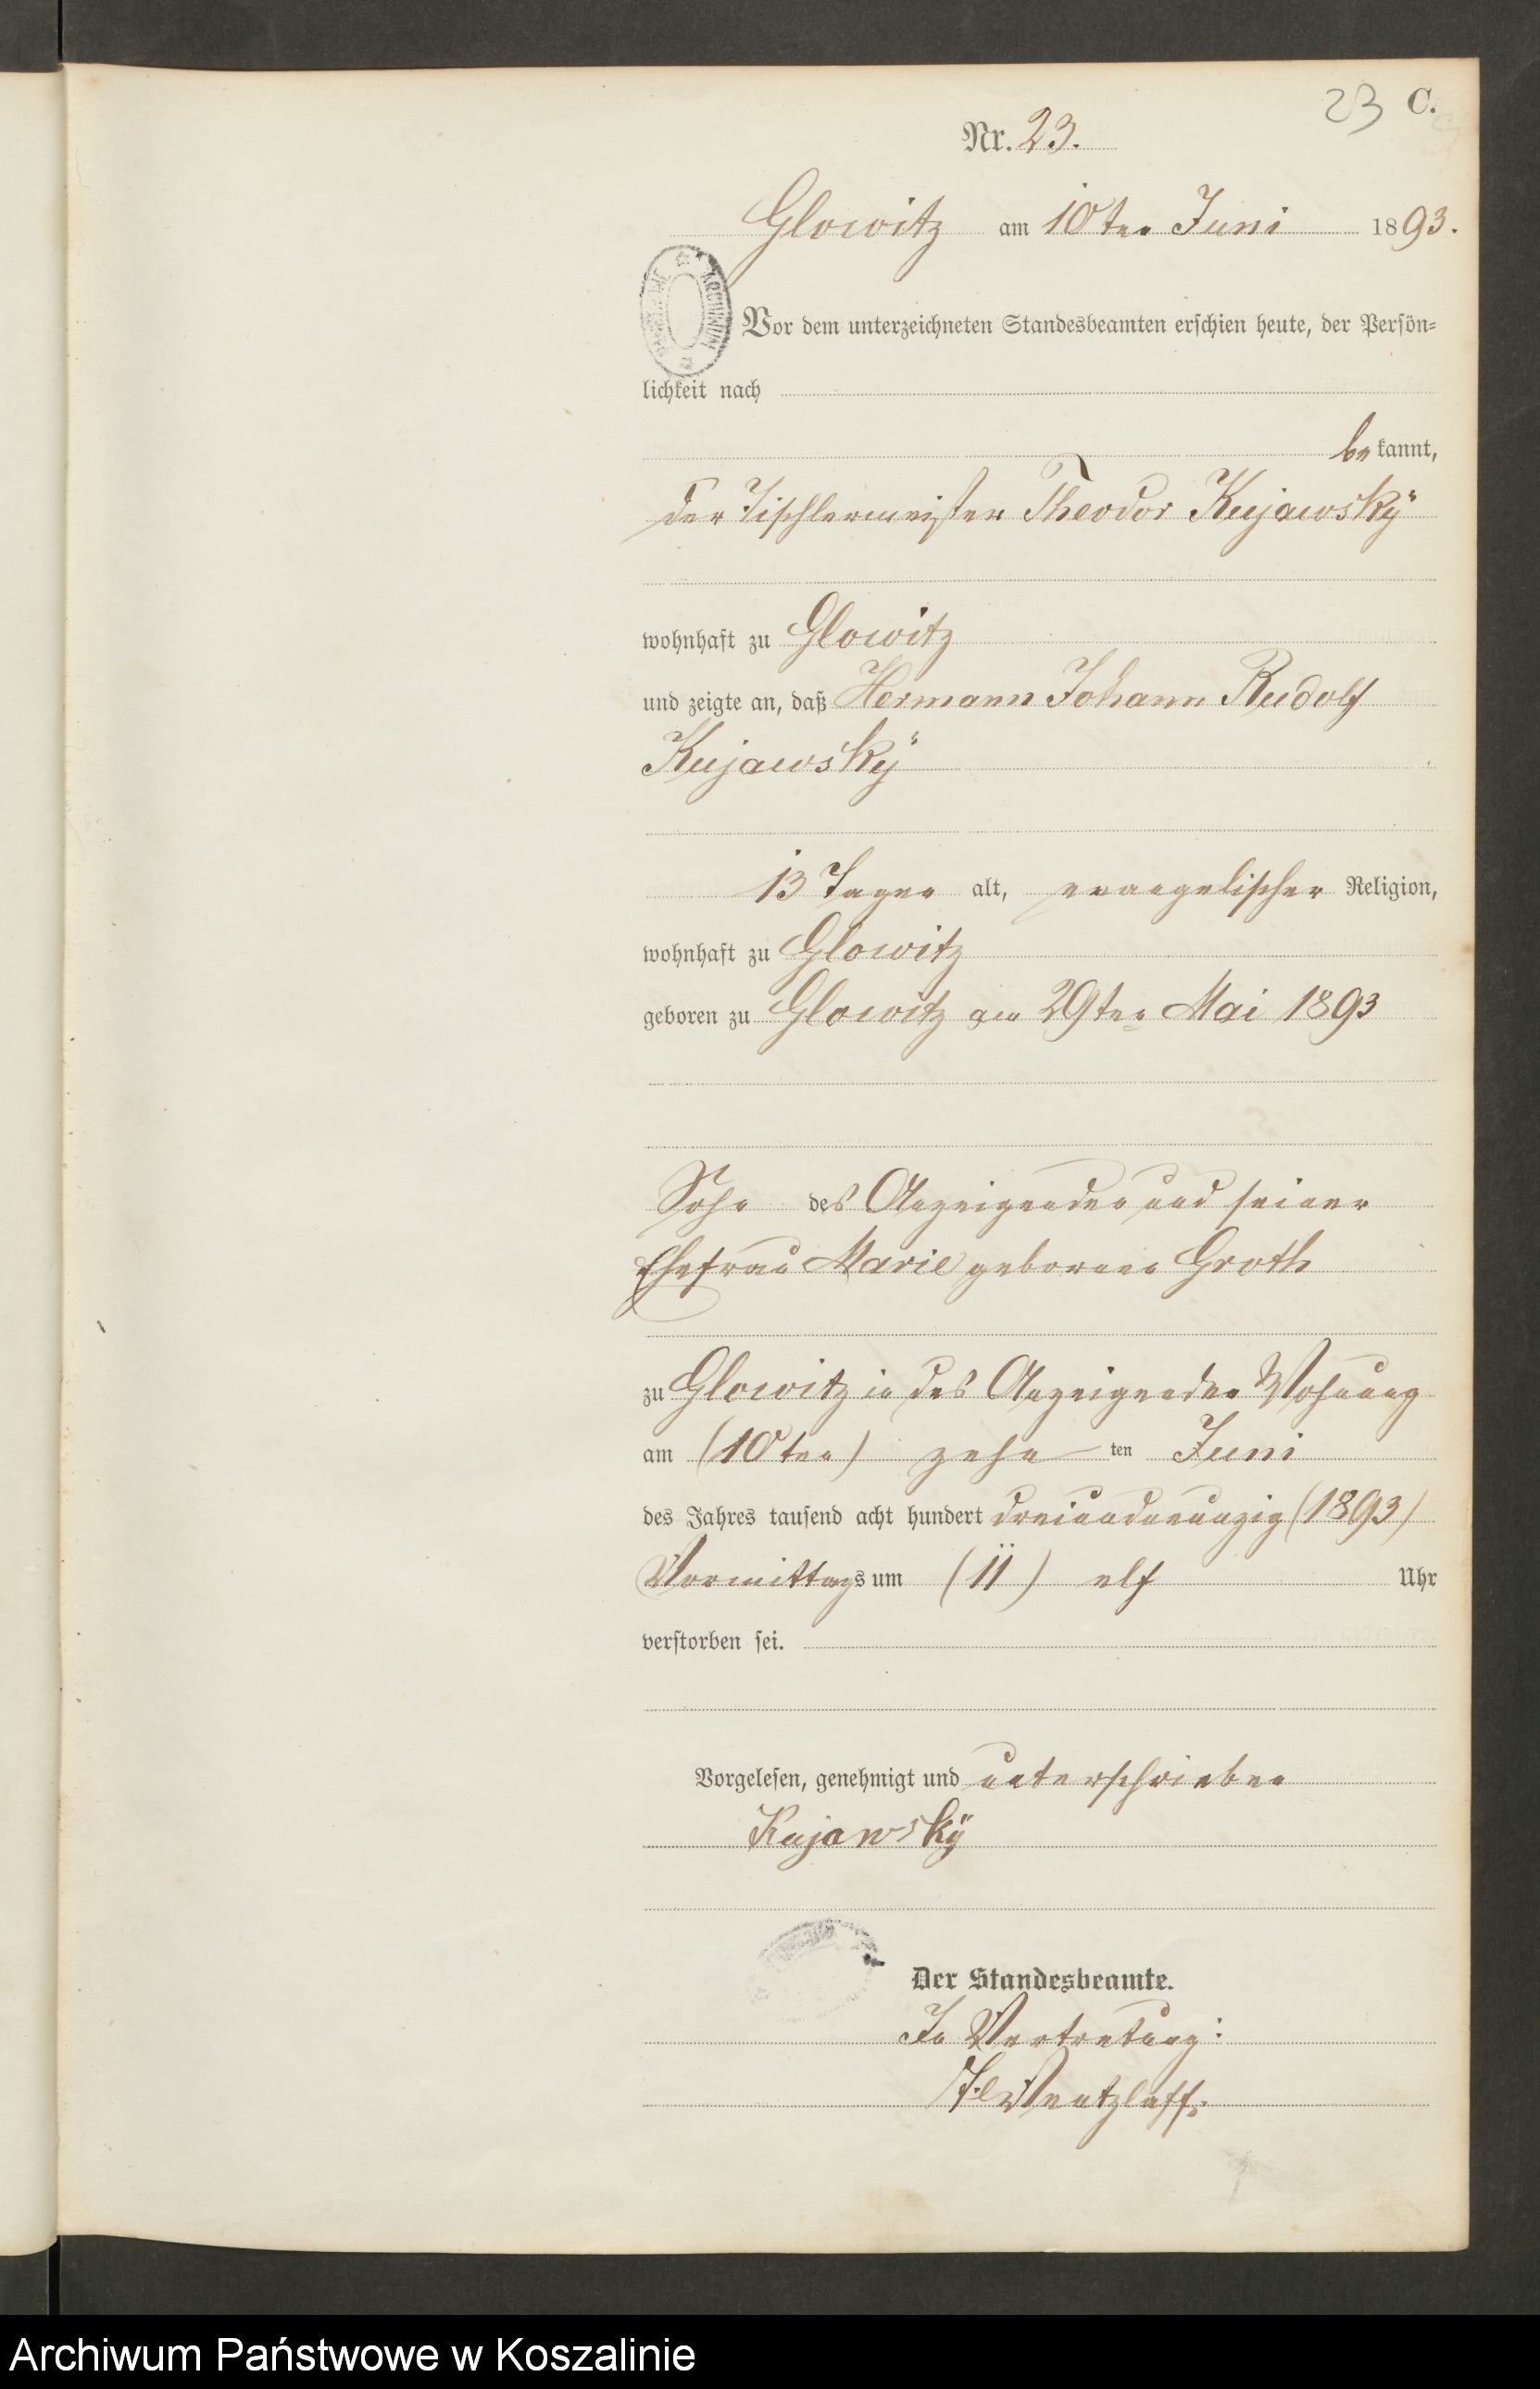 23 C.
Nr. 23.
Glowitz am 10ten Juni 1893.
Vor dem unterzeichneten Standesbeamten erschien heute, der Persön-
lichkeit nach
bekannt,
der Tischlermeister Theodor Kujawskÿ
wohnhaft zu Glowitz
und zeigte an, daß Hermann Johann Rudolf
Kujawskÿ
13 Tagen alt, evangelischer Religion,
wohnhaft zu Glowitz
geboren zu Glowitz am 29ten Mai 1893
Sohn des Anzeigenden und seiner
Ehefrau Marie geborenen Groth
zu Glowitz in des Anzeigenden Wohnung
am (10ten) zehn ten Juni
des Jahres tausend acht hundert dreiundneunzig (1893)
Vormittags um (11) elf Uhr
verstorben sei.
Vorgelesen, genehmigt und unterschrieben
Kujawskÿ
Der Standesbeamte.
In Vertretung:
Wentzlaff.
Archiwum Państwowe w Koszalinie